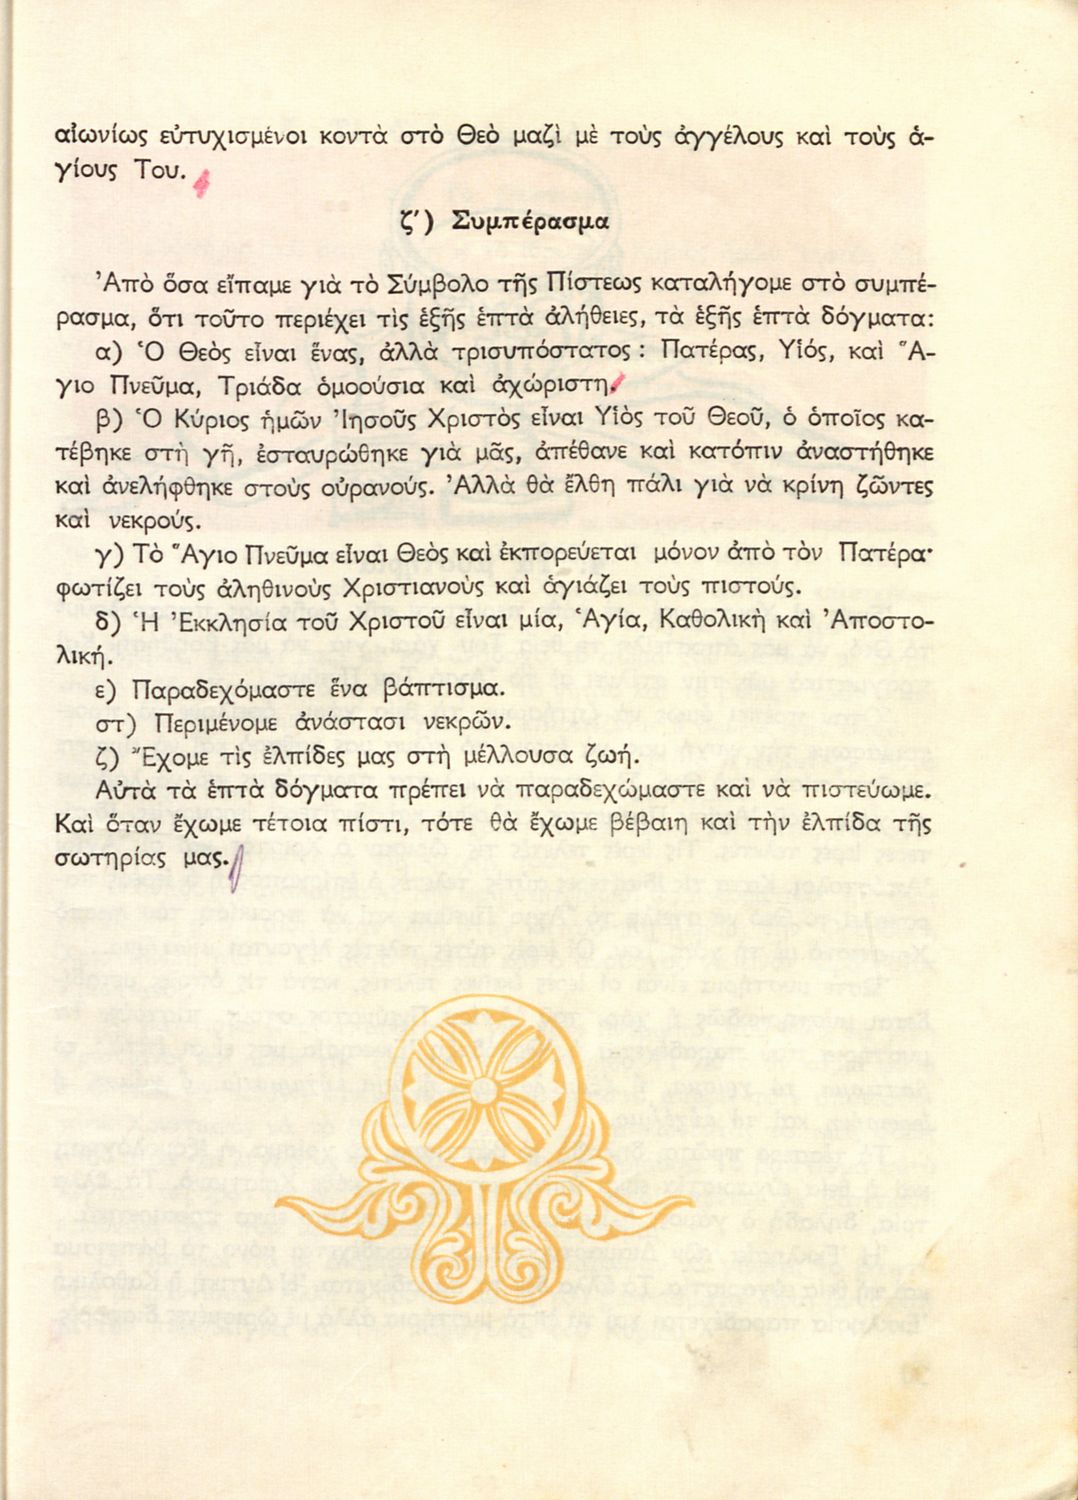 αἰωνίως εὐτυχισμένοι κοντὰ στὸ Θεὸ μαζὶ μὲ τοὺς ἀγγέλους καὶ τοὺς ἁ-
γίους Του.
ζ′) Συμπέρασμα
Ἀπὸ ὅσα εἴπαμε γιὰ τὸ Σύμβολο τῆς Πίστεως καταλήγομε στὸ συμπέ-
ρασμα, ὅτι τοῦτο περιέχει τὶς ἑξῆς ἑπτὰ ἀλήθειες, τὰ ἑξῆς ἑπτὰ δόγματα:
α) Ὁ Θεὸς εἶναι ἕνας, ἀλλὰ τρισυπόστατος : Πατέρας, Υἱός, καὶ Ἅ-
γιο Πνεῦμα, Τριάδα ὁμοούσια καὶ ἀχώριστη.
β) Ὁ Κύριος ἡμῶν Ἰησοῦς Χριστὸς εἶναι Υἱὸς τοῦ Θεοῦ, ὁ ὁποῖος κα-
τέβηκε στὴ γῆ, ἐσταυρώθηκε γιὰ μᾶς, ἀπέθανε καὶ κατόπιν ἀναστήθηκε
καὶ ἀνελήφθηκε στοὺς οὐρανούς. Ἀλλὰ θὰ ἔλθη πάλι γιὰ νὰ κρίνη ζῶντες
καὶ νεκρούς.
γ) Τὸ Ἅγιο Πνεῦμα εἶναι Θεὸς καὶ ἐκπορεύεται μόνον ἀπὸ τὸν Πατέρα·
φωτίζει τοὺς ἀληθινοὺς Χριστιανοὺς καὶ ἁγιάζει τοὺς πιστούς.
δ) Ἡ Ἐκκλησία τοῦ Χριστοῦ εἶναι μία, Ἁγία, Καθολικὴ καὶ Ἀποστο-
λική.
ε) Παραδεχόμαστε ἕνα βάπτισμα.
στ) Περιμένομε ἀνάστασι νεκρῶν.
ζ) Ἔχομε τὶς ἐλπίδες μας στὴ μέλλουσα ζωή.
Αὐτὰ τὰ ἑπτὰ δόγματα πρέπει νὰ παραδεχώμαστε καὶ νὰ πιστεύωμε.
Καὶ ὅταν ἔχωμε τέτοια πίστι, τότε θὰ ἔχωμε βέβαιη καὶ τὴν ἐλπίδα τῆς
σωτηρίας μας.